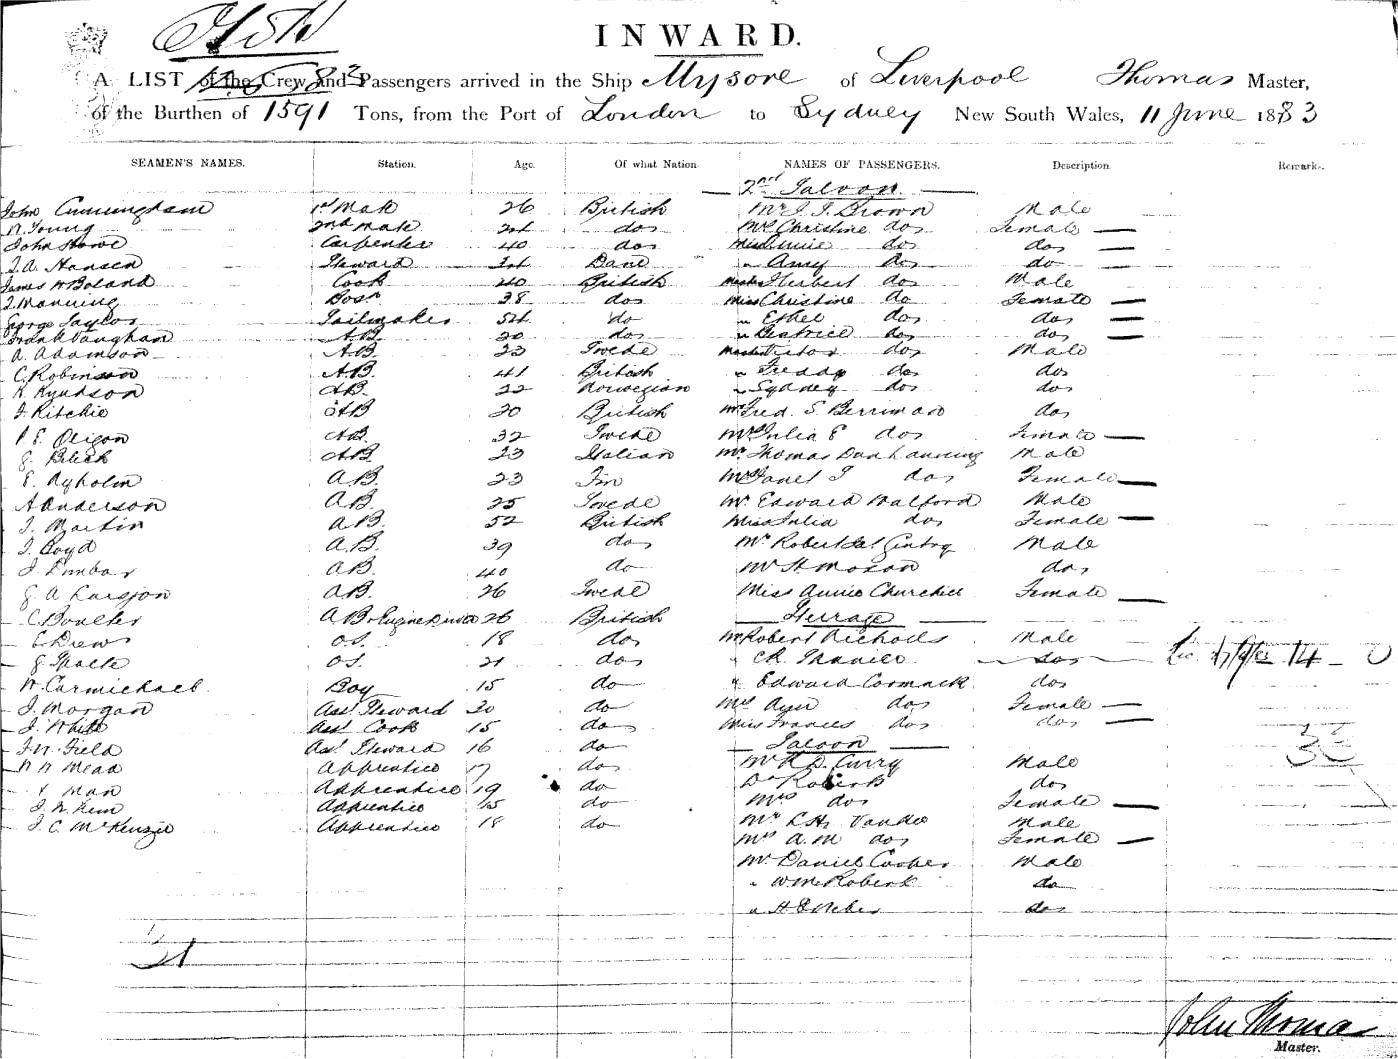 INWARD.
A LIST of the Crew and Passengers arrived in the Ship Mysore of Liverpool Thomas Master,
of the Burthen of 1591 Tons, from the Port of London to Sydney New South Wales, 11 June 1883
SEAMEN'S NAMES. Station. Age. Of what Nation. NAMES OF PASSENGERS. Description. Remarks.
2nd Saloon
John Cunningham 1st Mate 26 British Mr J. J. Brown Male
W. Young 2nd Mate do Mrs Christine do Female
John Howe Carpenter 40 do Miss do do
J. A. Hansen Steward Dane " Amy do do
James H Boland Cook 40 British Master Herbert do Male
J. Manning Bosn 38 do Miss Christine do Female
George Taylor Sailmaker 54 do " Ethel do do
Frank Vaughan A.B. 20 do " Beatrice do do
A. Adamson A.B. 23 Swede Master Victor do Male
C. Robinson A.B. 41 British " Freddy do do
K. Knudson A.B. 22 Norwegian " Sydney do do
J. Ritchie A.B. 20 British Mr Fred. S. Berriman do
P. E. A.B. 32 Swede Mrs Julia E do Female
G. A.B. 23 Italian Mr Thomas Dan Lanning Male
E. Nyholm A.B. 23 Fin Mrs Janet J do Female
A Anderson A.B. 25 Swede Mr Edward Walford Male
J. Martin A.B. 52 British Miss Julia do Female
J. Boyd A.B. 39 do Mr Robert Male
J Dunbar A.B. 40 do Mr H. Moxon do
G. A Larsson A.B. 26 Swede Miss Annie Churchill Female
C. Boulter A B & Engine Driver 26 British Steerage
E. Drew O.S. 18 do Mr Robert Nicholls Male
G. O.S. 21 do " C. R. do 14 - 0
W. Carmichael Boy 15 do " Edward Cormack do
J. Morgan Asst Steward 20 do Mrs Ann do Female
J. White Asst Cook 15 do Miss Frances do do
J. W. Field Asst Steward 16 do Saloon
W H Mead Apprentice 17 do Mr R. D. Curry Male
Man Apprentice 19 do Dr Roberts do
J. W. Kem Apprentice 15 do Mrs do Female
J. C. McKenzie Apprentice 18 do Mr L. H. Male
Mrs A. M do Female
Mr Daniel Cooper Male
" Wm Robert do
" H. do
31
John Thomas
Master.